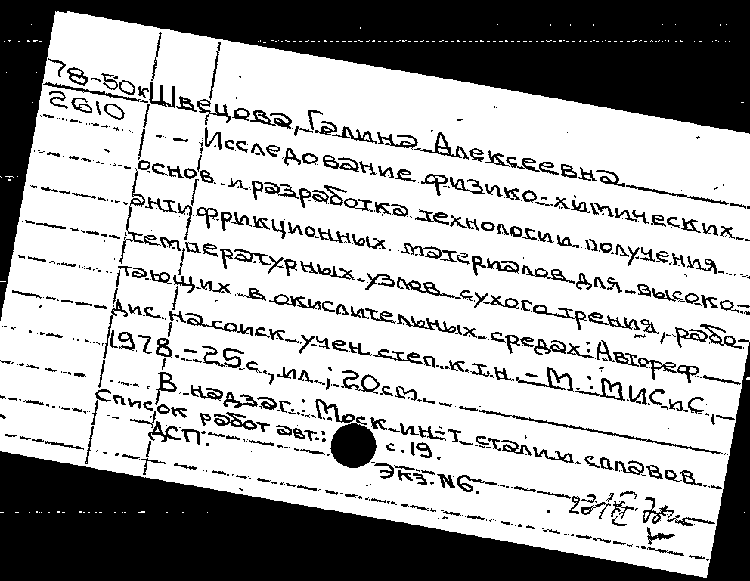 78-50к
2610
Швецова, Галина Алексеевна
Исследование физико-химических
основ и разработка технологии получения
антифрикционных материалов для высоко-
температурных узлов сухого трения, рабо-
тающих в окислительных средах: Автореф.
дис. на соиск. учен. степ. к.т.н. - М.: МИСиС,
1978. - 25с., ил.; 20см.
В надзаг.: Моск. ин-т стали и сплавов
Список работ авт.: с. 19.
ДСП. Экз. №6.